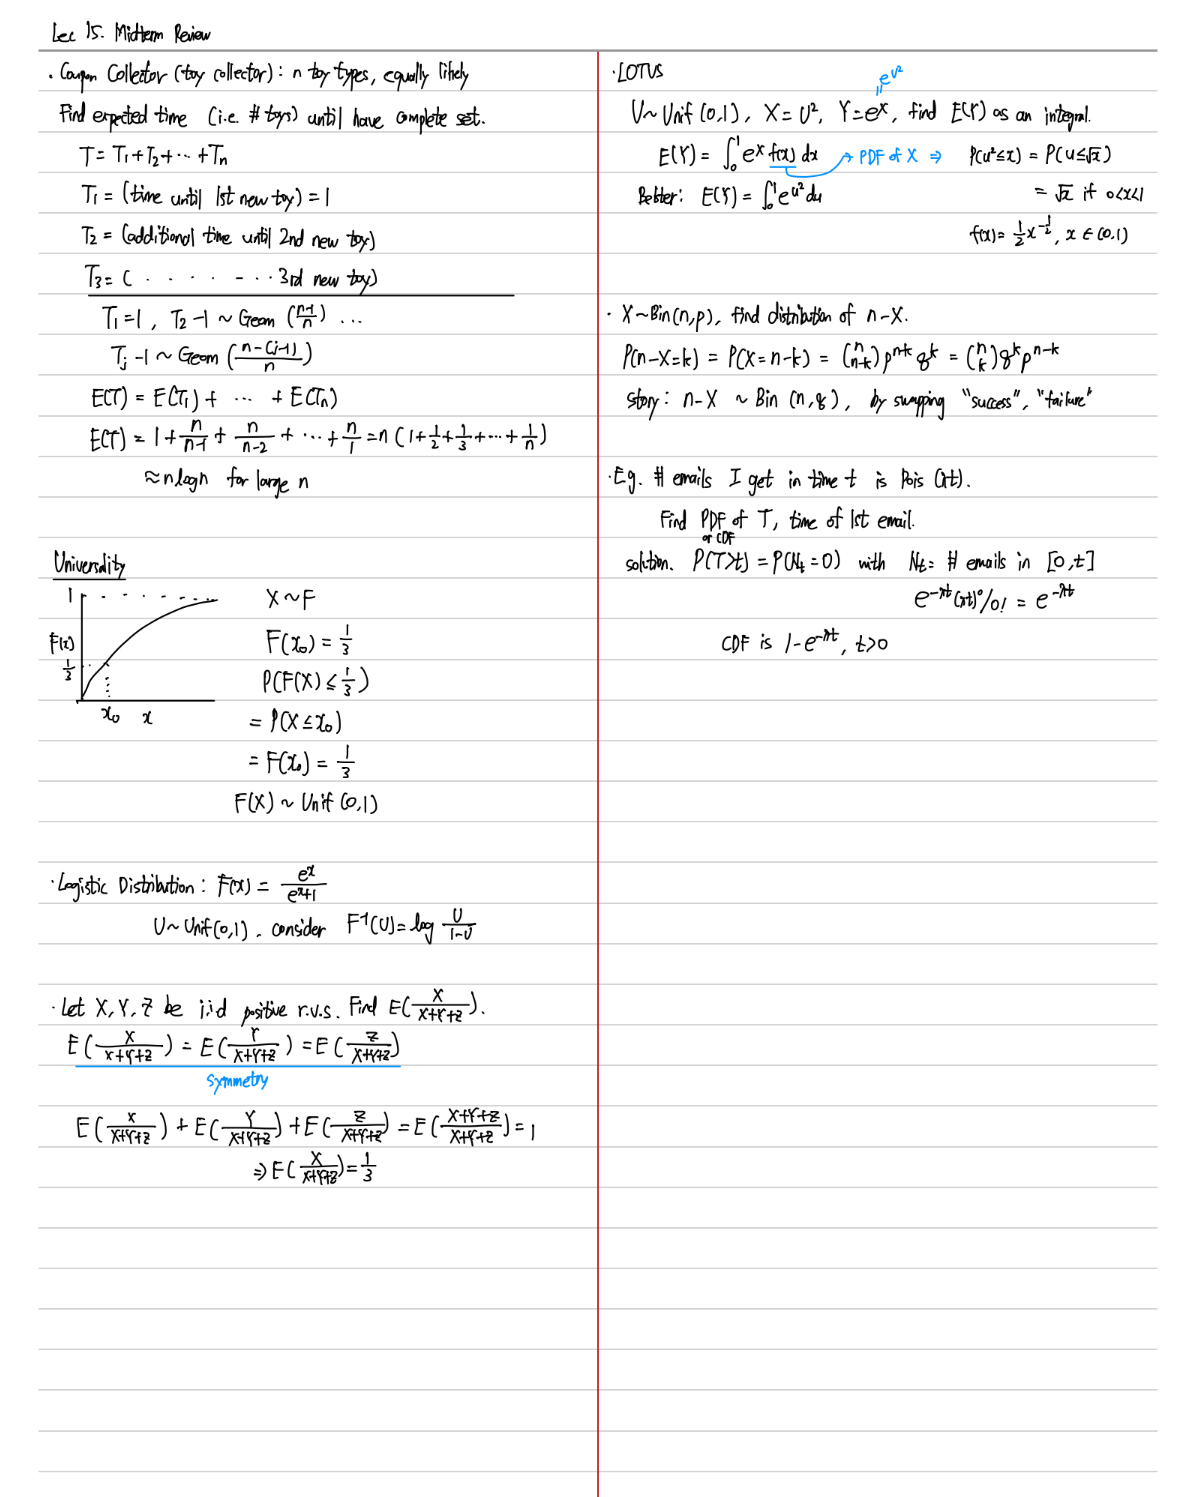 Lec 15. Midterm Review
· Coupon Collector (toy collector): n toy types, equally likely
Find expected time (i.e. # toys) until have complete set.
T = T₁+T₂+ ··· +Tₙ
T₁ = (time until 1st new toy) = 1
T₂ = (additional time until 2nd new toy)
T₃ = ( · · · · - ··· 3rd new toy)
T₁=1, T₂-1 ~ Geom (n-1/n) ...
Tⱼ -1 ~ Geom (n-(j-1)/n)
E(T) = E(T₁) + ··· + E(Tₙ)
E(T) = 1+ n/n-1 + n/n-2 + ··· + n/1 = n (1+ 1/2 + 1/3 +···+ 1/n)
≈ n log n for large n
Universality
1
F(x)
1/3
x₀ x
X ~ F
F(x₀) = 1/3
P(F(X) ≤ 1/3)
= P(X ≤ x₀)
= F(x₀) = 1/3
F(X) ~ Unif (0,1)
· Logistic Distribution : F(x) = eˣ/eˣ+1
U ~ Unif(0,1). consider F⁻¹(U) = log U/1-U
· Let X, Y, Z be i.i.d positive r.v.s. Find E(X/X+Y+Z).
E(X/X+Y+Z) = E(Y/X+Y+Z) = E(Z/X+Y+Z)
symmetry
E(X/X+Y+Z) + E(Y/X+Y+Z) + E(Z/X+Y+Z) = E(X+Y+Z/X+Y+Z) = 1
⇒ E(X/X+Y+Z) = 1/3
· LOTUS
e^u²
=
U ~ Unif (0,1), X = U², Y = eˣ, find E(Y) as an integral.
E(Y) = ∫₀¹ eˣ f(x) dx → PDF of X ⇒ P(u² ≤ x) = P(u ≤ √x)
Better: E(Y) = ∫₀¹ e^u² du = √x if 0<x<1
f(x) = 1/2 x^-1/2, x ∈ (0,1)
· X ~ Bin(n,p), find distribution of n-X.
P(n-X=k) = P(X=n-k) = (n n-k) pⁿ⁻ᵏ qᵏ = (n k) qᵏ pⁿ⁻ᵏ
story: n-X ~ Bin (n,q), by swapping "success", "failure"
· Eg. # emails I get in time t is Pois (λt).
Find PDF of T, time of 1st email.
or CDF
solution. P(T>t) = P(Nₜ=0) with Nₜ= # emails in [0,t]
e^-λt (λt)⁰/0! = e^-λt
CDF is 1-e^-λt, t>0